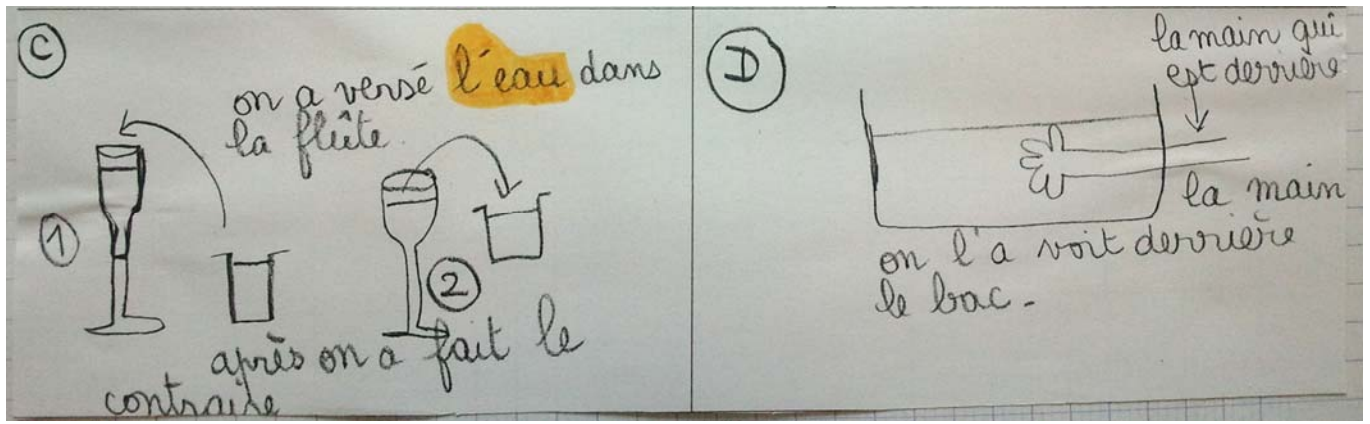 C
on a versé l'eau dans
la flûte.
1
2
après on a fait le
contraire
D
la main qui
est derrière
la main
on l'a voit derrière
le bac.